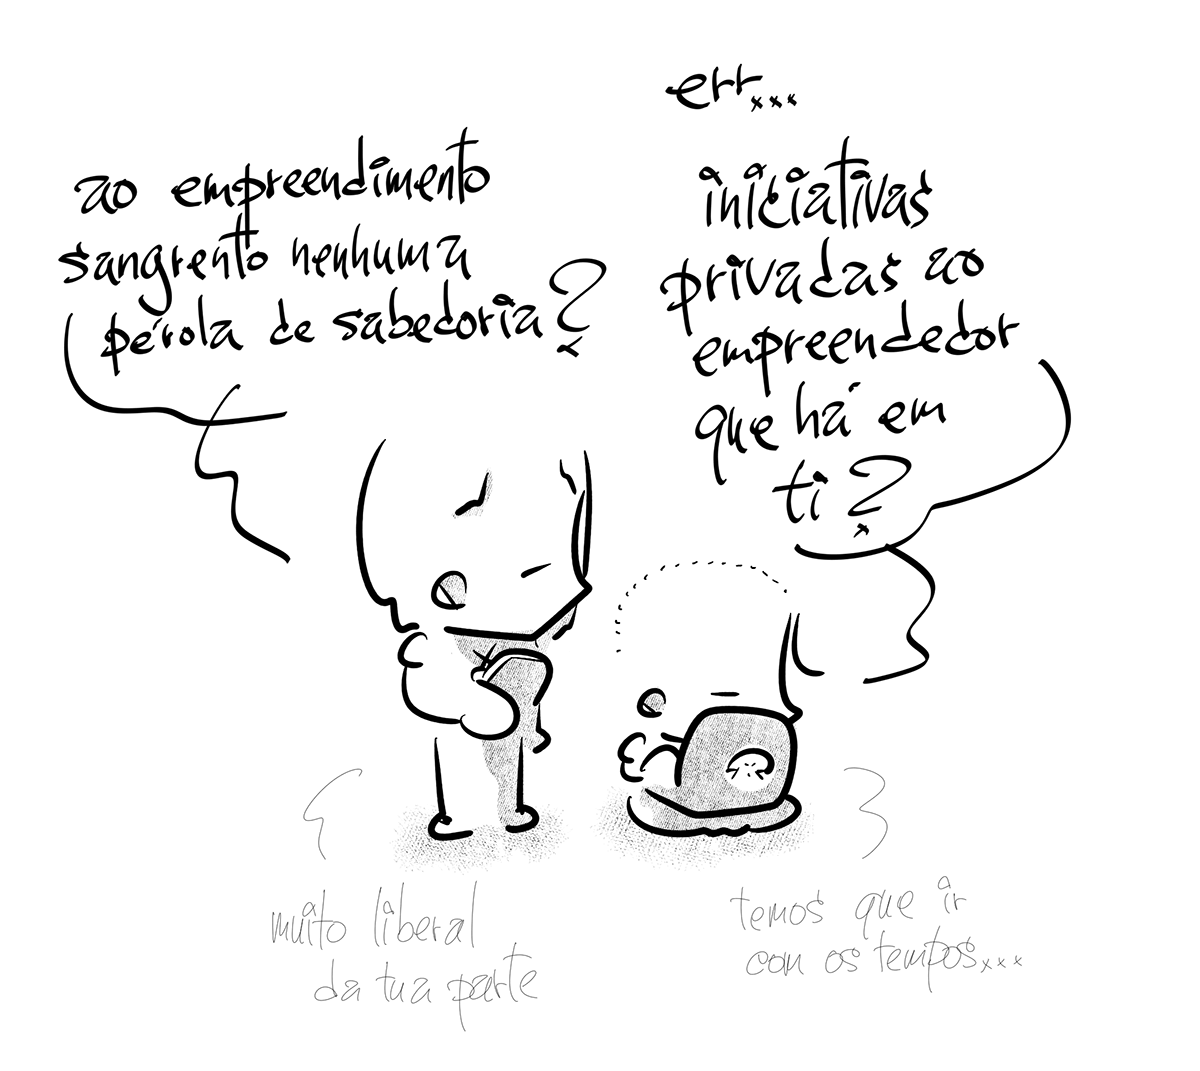 ao empreendimento
sangrento nenhuma
pérola de sabedoria?
err...
iniciativas
privadas ao
empreendedor
que há em
ti?
muito liberal
da tua parte
temos que ir
com os tempos...